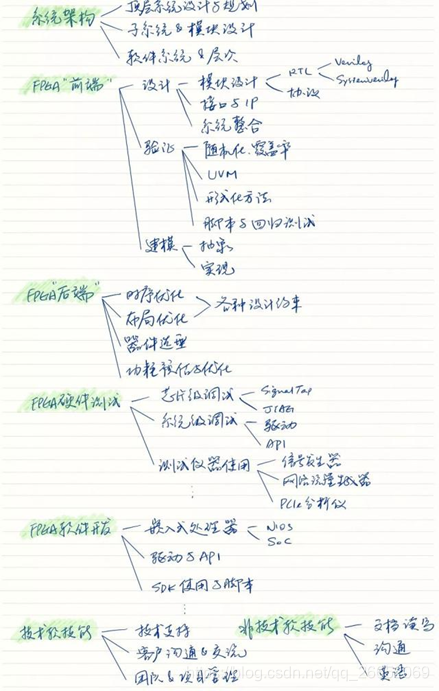 顶层系统设计与规划
系统架构
子系统 & 模块设计
软件系统 & 层次
FPGA "前端" 设计 模块设计 RTL Verilog
SystemVerilog
协议
接口与IP
系统整合
验证 随机化、覆盖率
UVM
形式化方法
脚本与回归测试
建模 抽象
实现
FPGA "后端" 时序优化
布局优化 各种设计约束
器件选型
功耗预估与优化
FPGA硬件测试 芯片级调试 SignalTap
JTAG
系统级调试 驱动
API
测试仪器使用 信号发生器
网络流量生成器
PCIe分析仪
⋮
FPGA软件开发 嵌入式处理器 NIOS
SoC
驱动与API
SDK使用与脚本
⋮
技术软技能 技术支持 非技术软技能 文档读写
客户沟通 & 交流 沟通
团队 & 项目管理 英语